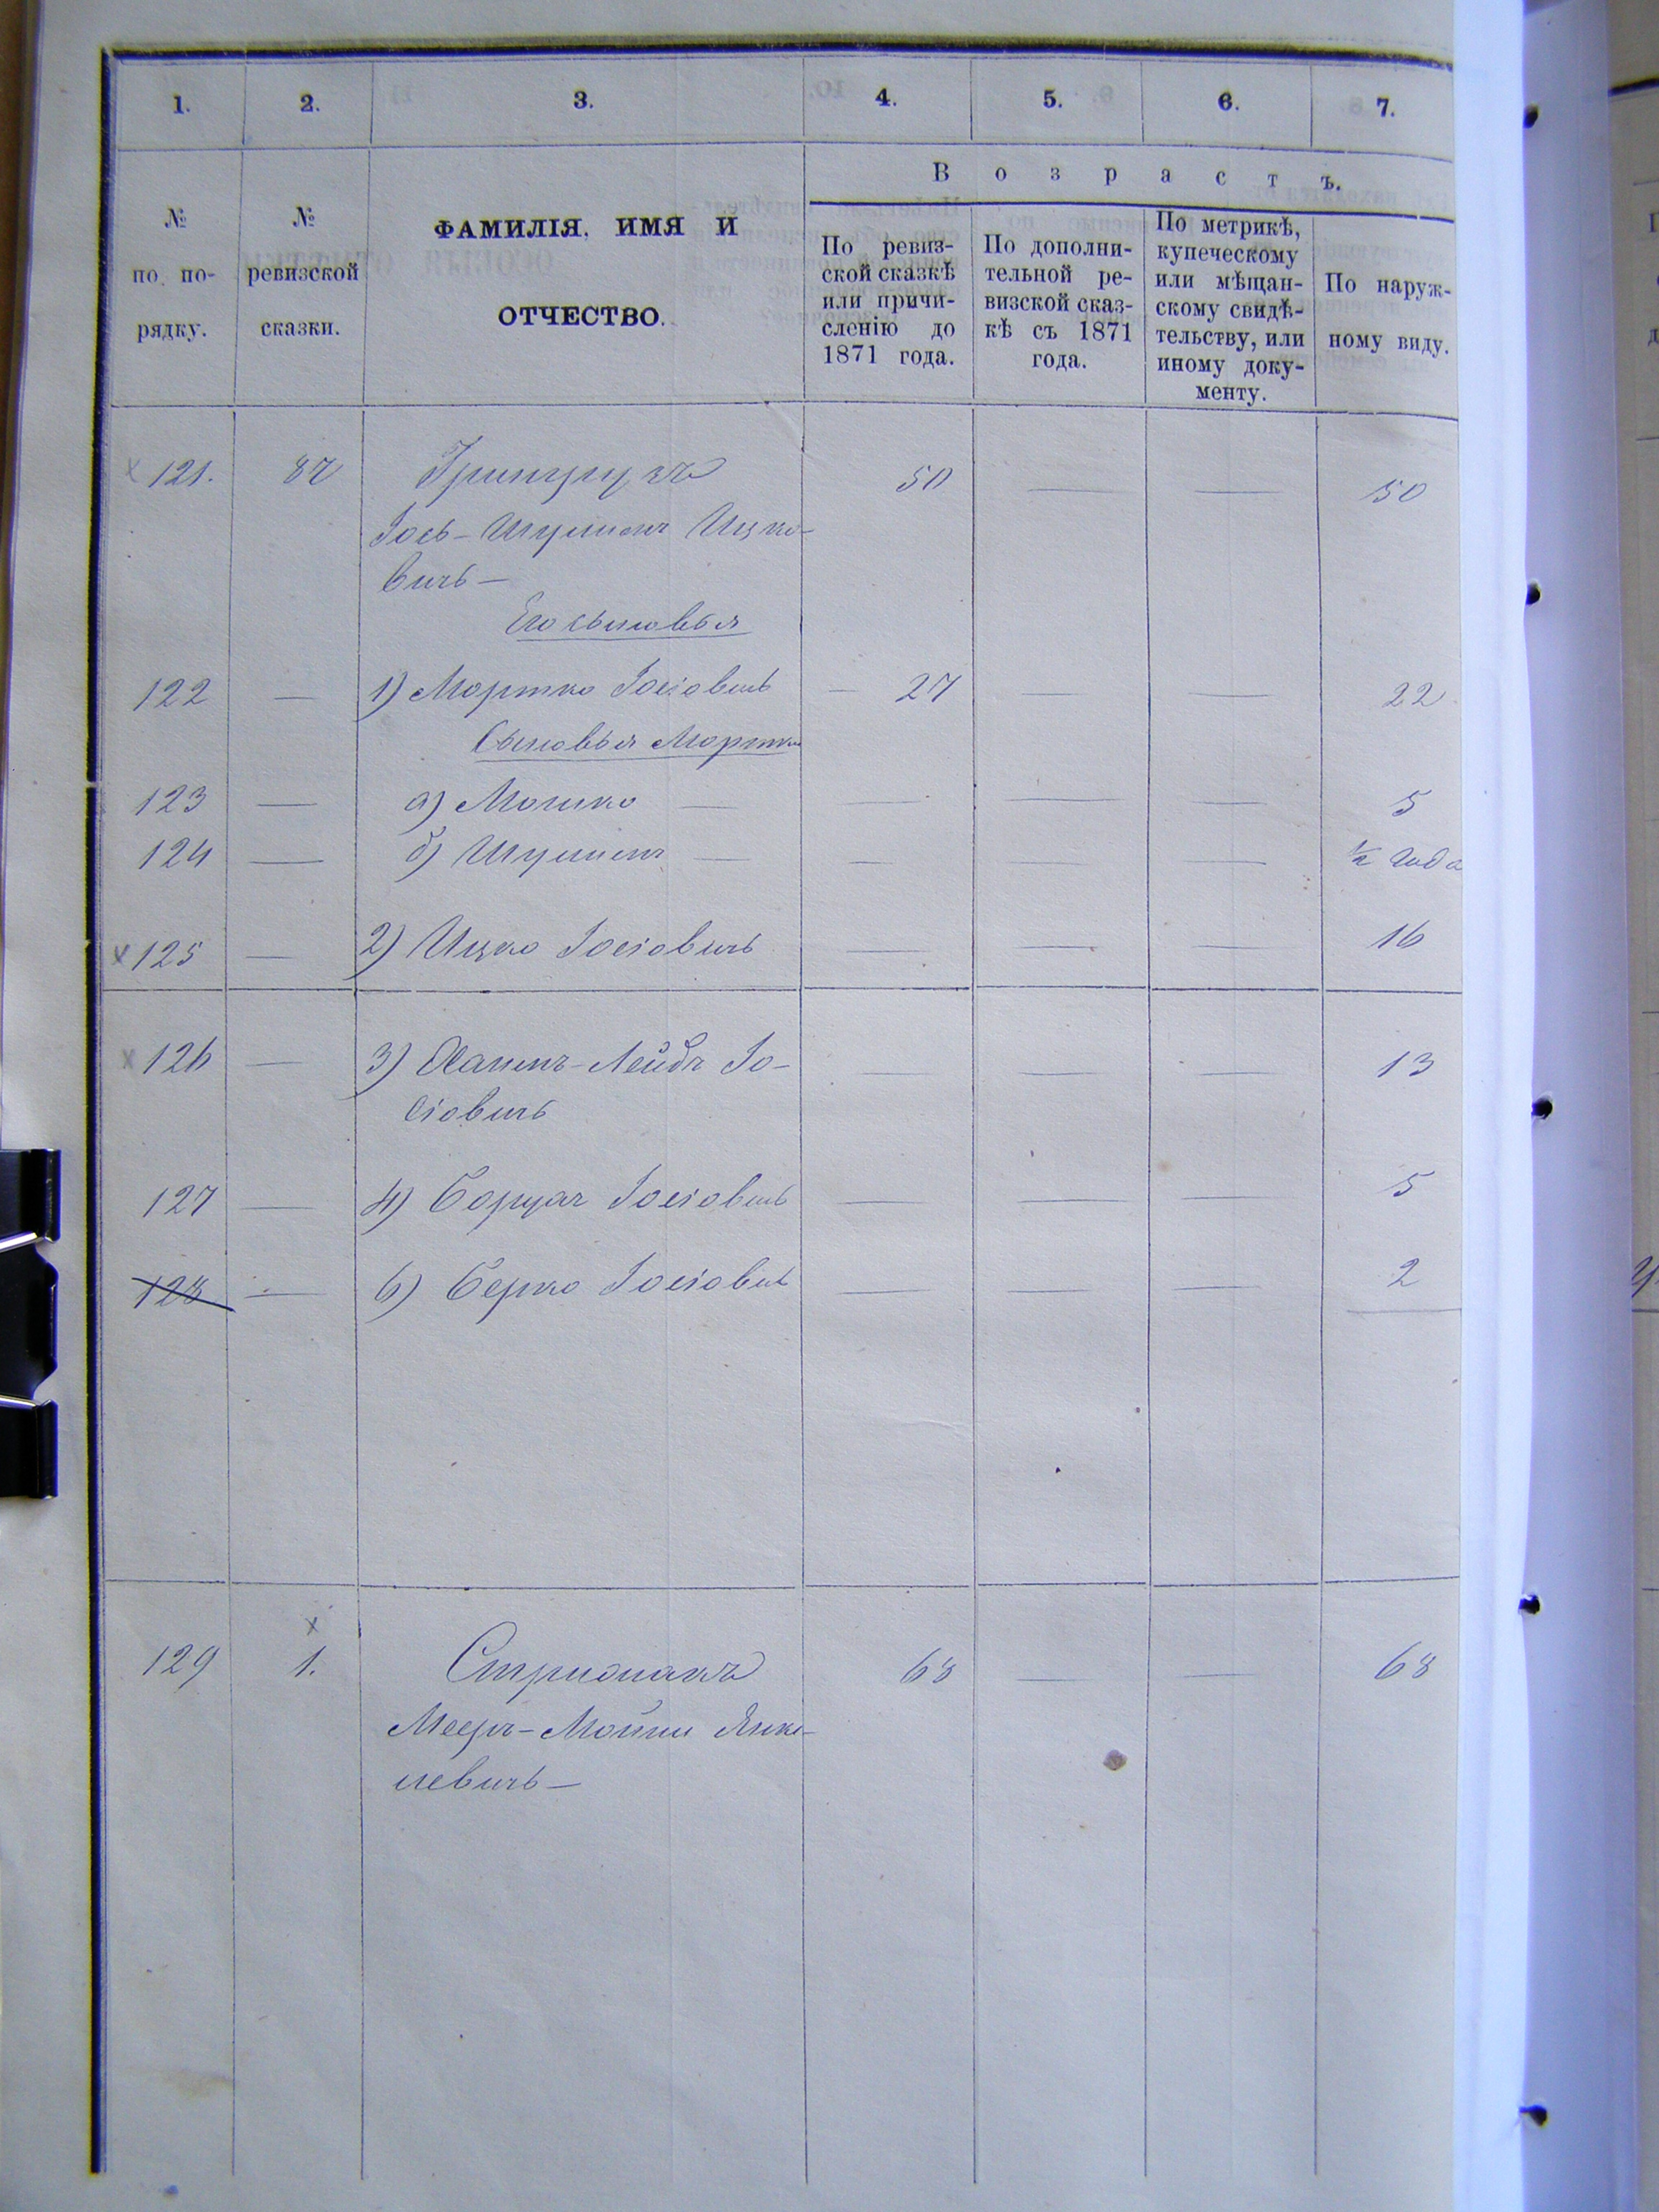 1. 2. 3. 4. 5. 6. 7.
В о з р а с т ъ.
№ по по-рядку.
№ ревизской сказки.
ФАМИЛІЯ, ИМЯ И
ОТЧЕСТВО.
По ревиз-
ской сказкѣ
или причи-
сленію до
1871 года.
По дополни-
тельной ре-
визской сказ-
кѣ съ 1871
года.
По метрикѣ,
купеческому
или мѣщан-
скому свидѣ-
тельству, или
иному доку-
менту.
По наруж-
ному виду.
х 121. 50 — — 50
Іось-Шулимъ Ицко-
вичъ —
Его сыновья
122 — 1) Мортко Іосіовичъ — 27 — — 22
Сыновья Мортки
123 — а) Мошко — — — 5
124 — б) Шулимъ — — — ½ года
х 125 — 2) Ицко Іосіовичъ — — — 16
х 126 — 3) Хаимъ-Лейбъ Іо- — — — 13
сіовичъ
127 — 4) Іосіовичъ — — — 5
128 — 6) Берко Іосіовичъ — — — 2
х
129 1. 68 — — 68
Янке-
левичъ —